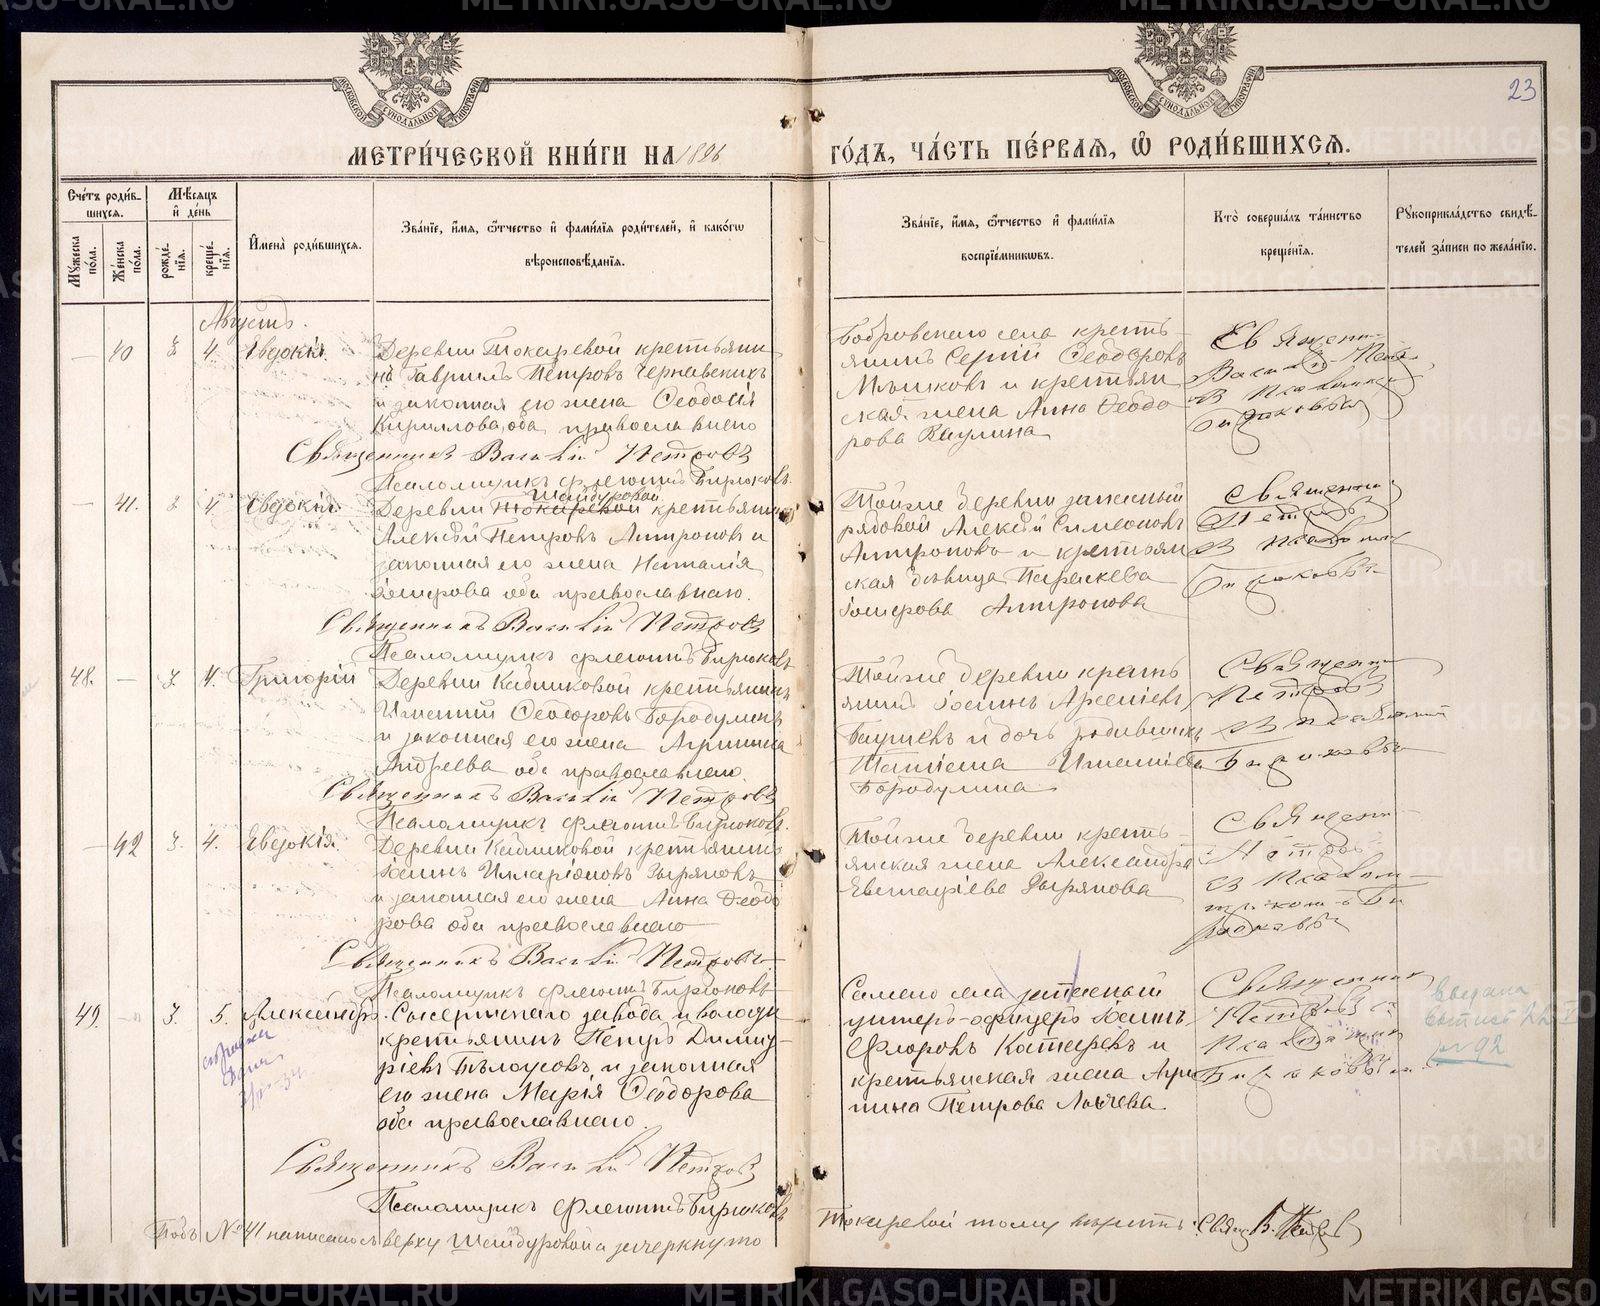 23
МЕТРИ́ЧЕСКОЙ КНИ́ГИ НА 1896 ГО́ДЪ, ЧА́СТЬ ПЕ́РВАЯ, Ѡ҆ РОДИ́ВШИХСЯ.
Сче́тъ роди́в-
шихся.
Мѣ́сяцъ
и҆ де́нь
Мꙋ́жеска
по́ла.
Же́нска
по́ла.
рожде́-
нїя.
креще́-
нїя.
И҆мена̀ роди́вшихся.
Зва́нїе, и҆́мя, ѻ҆́тчество и҆ фами́лїя роди́телей, и҆ како́гѡ
вѣроисповѣ́данїя.
Зва́нїе, и҆́мя, ѻ҆́тчество и҆ фами́лїя
воспрїе́мникѡвъ.
Кто̀ соверша́лъ та́инство
креще́нїя.
Рꙋкоприкла́дство свидѣ́-
телей за́писи по жела́нїю.
Августъ.
— 40 3 4. Евдокія.
Деревни Токаревой крестьяни-
нъ Гавріилъ Петровъ Чернавскихъ
и законная его жена Ѳеодосія
Кириллова, оба православнаго
Священникъ Василій Петровъ
Псаломщикъ Флегонтъ Бирюковъ.
Бобровскаго села кресть-
янинъ Сергій Ѳеодоровъ
Мѣшковъ и крестьян
ская жена Анна Ѳеодо
рова Ваулина
Священн-
Василій Пет
съ Псаломщи
Бирюковым
— 41. 3 4 Евдокія
Шайдуровой
Деревни Токаревой крестьянинъ
Алексѣй Петровъ Антроповъ и
законная его жена Наталія
оба православнаго.
Священникъ Василій Петровъ
Псаломщикъ Флегонтъ Бирюковъ
Тойже деревни запасный
рядовой Алексѣй Симеоновъ
Антроповъ и крестьян
ская дѣвица Параскева
Антропова
Священни
Петровъ
съ Псалом
Бирюковым
48. — 3. 4. Григорій
Деревни Кадниковой крестьянинъ
Игнатій Ѳеодоровъ Бородулинъ
и законная его жена Агрипина
Андреева оба православнаго.
Священникъ Василій Петровъ
Псаломщикъ Флегонтъ Бирюковъ.
Тойже деревни кресть
янинъ Іоаннъ Арсеніевъ
и дочь родившихъ
Татіана Игнатіева
Бородулина
Священн
Петровъ
съ псаломщи
Бирюковым
— 42 3. 4. Евдокія.
Деревни Кадниковой крестьянинъ
Іоаннъ Илларіоновъ Зыряновъ
и законная его жена Анна Ѳеодо
рова оба православнаго
Священникъ Василій Петровъ.
Псаломщикъ Флегонтъ Бирюковъ
Тойже деревни кресть-
янская жена Александра
Евстафіева Зырянова
Священ-
Петров
съ Псалом-
щикомъ Би
рюковым
49. — 3. 5. Александръ.
справка
дана
Сысертскаго завода и волости
крестьянинъ Петръ Дмит-
ріевъ Бѣлоусовъ и законная
его жена Марія Ѳеодорова
оба православнаго.
Священникъ Василій Петровъ
Псаломщикъ Флегонтъ Бирюковъ
Самаго села запасный
унтеръ-офицеръ Іоаннъ
Флоровъ Катаревъ и
крестьянская жена Агри
пина Петрова
Священник
Петровъ с
Псаломщик
Бирюковым
выдана
№ 92
Подъ № 41 написано сверху Шайдуровой а зачеркнуто
Токаревой тому вѣрить: Свящ. В. Петров
METRIKI.GASO-URAL.RU